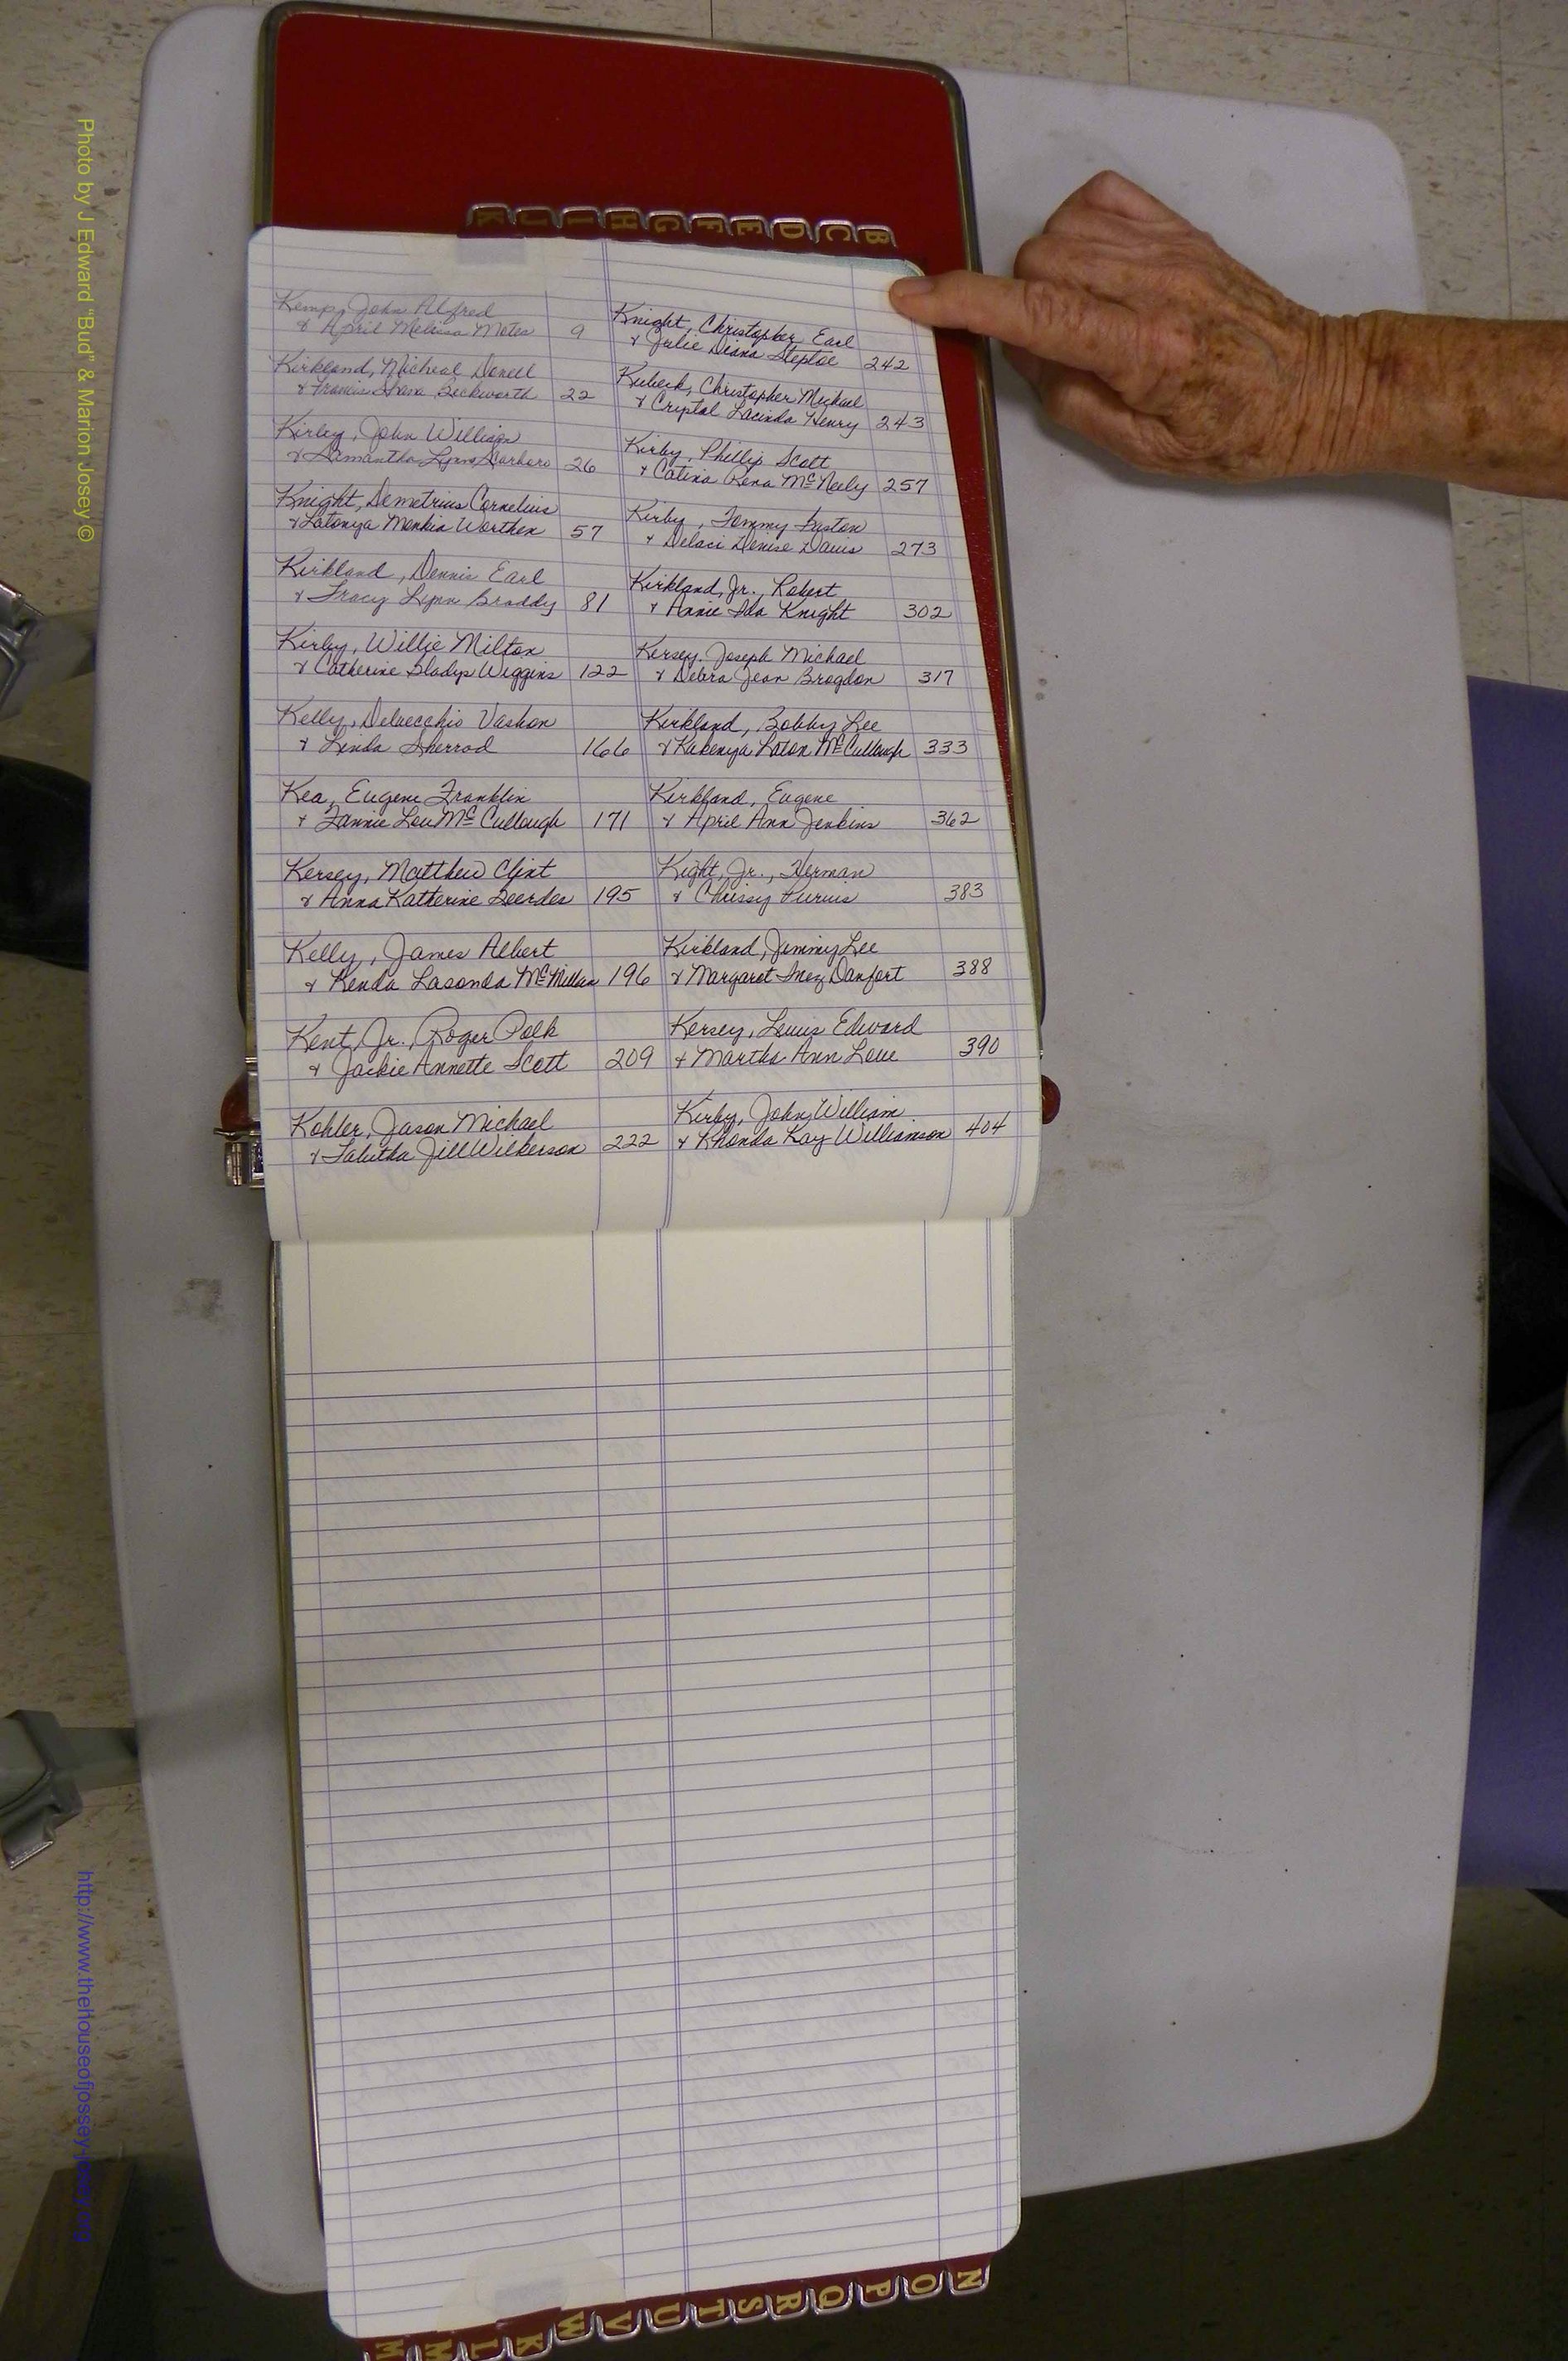 K J I H G F E D C B
Kemp, John Alfred
& April Melissa Motes 9
Kirkland, Micheal Donell
& Francis Shana Beckworth 22
Kirley, John William
& Samantha Lynn Scarboro 26
Knight, Demetrius Cornelius
& Latonya Menkia Worthen 57
Kirkland, Dennis Earl
& Tracy Lynn Braddy 81
Kirby, Willie Milton
& Catherine Gladys Wiggins 122
Kelly, Delvecchio Vashon
& Linda Sherrod 166
Kea, Eugene Franklin
& Fannie Lou McCullough 171
Kersey, Matthew Clint
& Anna Katherine 195
Kelly, James Albert
& Kenda Lasonda McMillan 196
Kent, Jr., Roger Polk
& Jackie Annette Scott 209
Kohler, Jason Michael
& Tabitha Jill Wilkerson 222
Knight, Christopher Earl
& Julie Diana Steptoe 242
Kubeck, Christopher Michael
& Crystal Lacinda Henry 243
Kirby, Phillip Scott
& Catina Rena McNeely 257
Kirby, Tommy Gaston
& Delaci Denise Davis 273
Kirkland, Jr., Robert
& Annie Ida Knight 302
Kersey, Joseph Michael
& Debra Jean Brogdon 317
Kirkland, Bobby Lee
& McCullough 333
Kirkland, Eugene
& April Ann Jenkins 362
Kight, Jr., Herman
& Chrissy Purvis 383
Kirkland, Jimmy Lee
& Margaret Inez Danfort 388
Kersey, Lewis Edward
& Martha Ann Love 390
Kirby, John William
& Rhonda Kay Williamson 404
M M L K W V U T S R Q P O N
Photo by J Edward "Bud" & Marion Josey ©
http://www.thehouseofjossey-josey.org